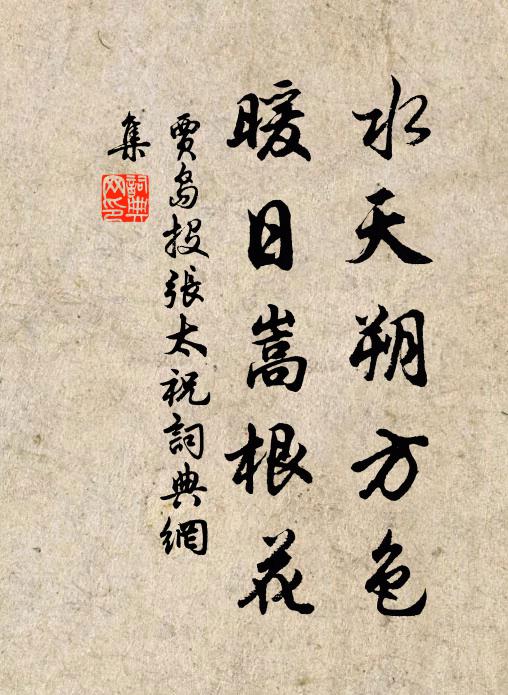 水天朔方色
暖日嵩根花
賈島投張太祝詞典網
集
詞典
网印